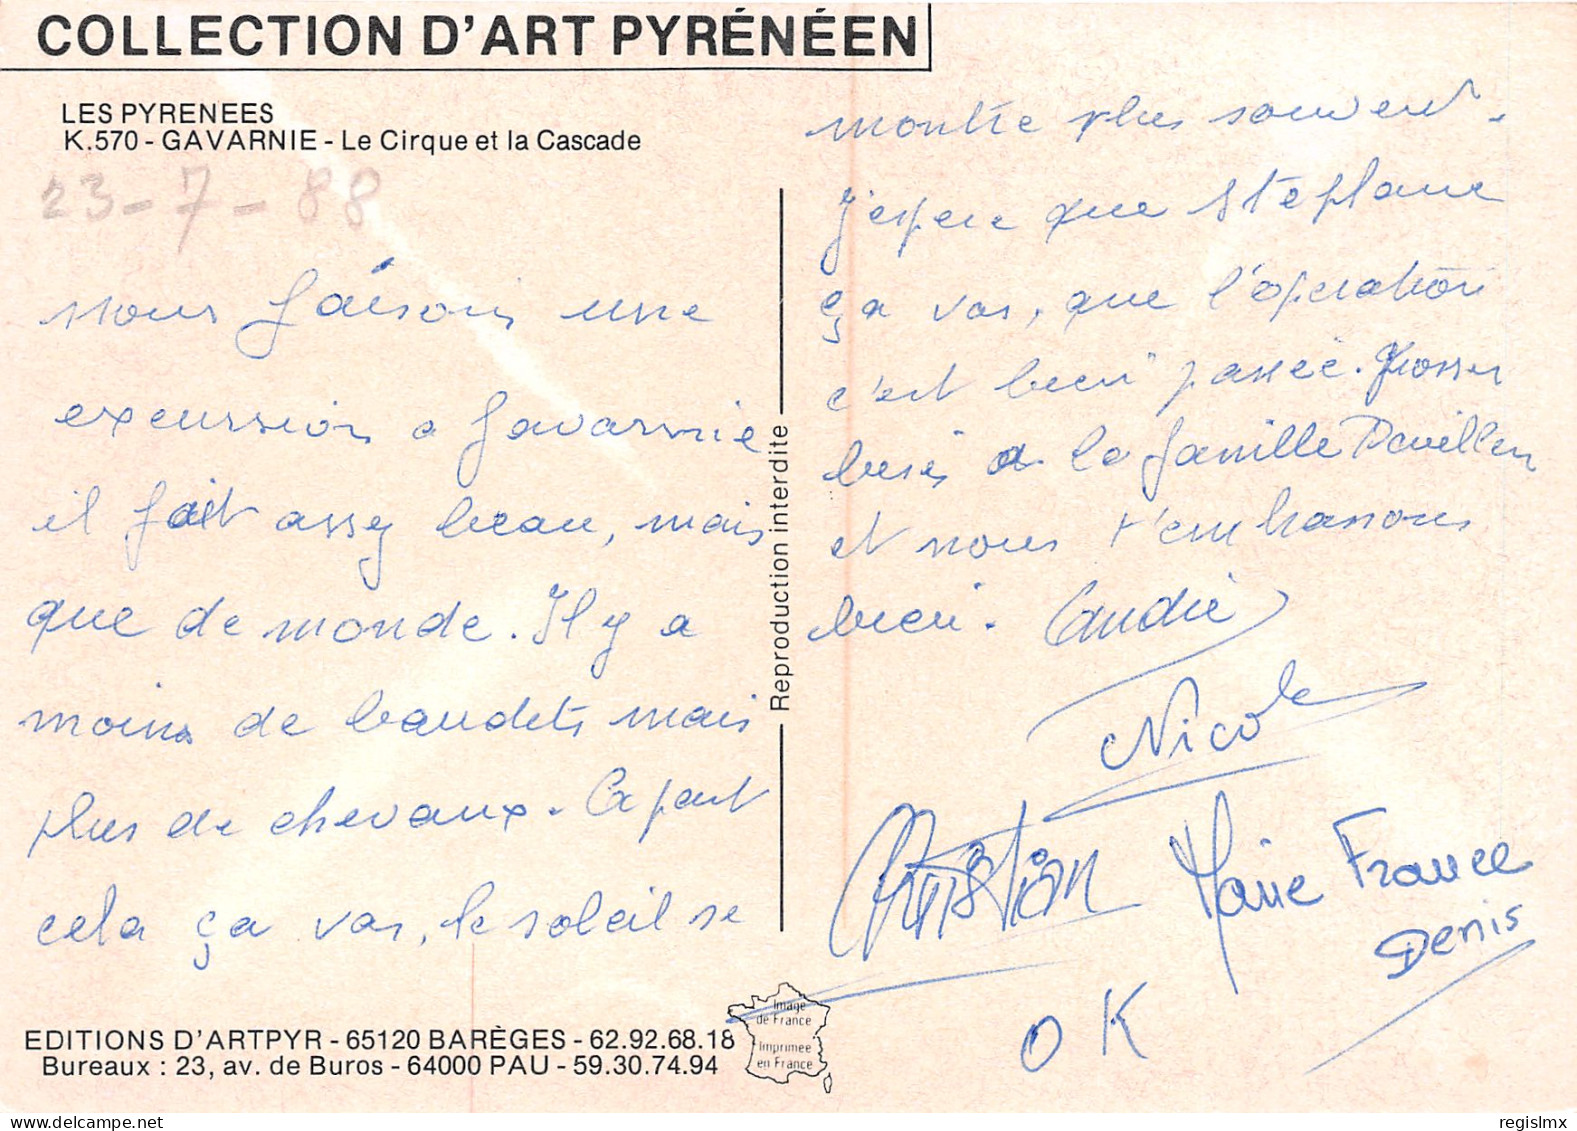 COLLECTION D'ART PYRÉNÉEN
LES PYRENEES
K.570 - GAVARNIE - Le Cirque et la Cascade
23-7-88
nous faisons une
excursion a Gavarnie
il fait assez beau, mais
que de monde. Il y a
moins de baudets mais
plus de chevaux. A part
cela ça vas, le soleil se
montre plus souvent.
J'espere que Stéphane
ça vas, que l'opération
c'est bien passée. Grosses
bises a la famille
et nous t'embrassons
bien.
Nicole
Christian
Marie France
Denis
OK
Reproduction interdite
EDITIONS D'ARTPYR - 65120 BARÈGES - 62.92.68.18
Bureaux : 23, av. de Buros - 64000 PAU - 59.30.74.94
Image
de France
Imprimée
en France
regislmx